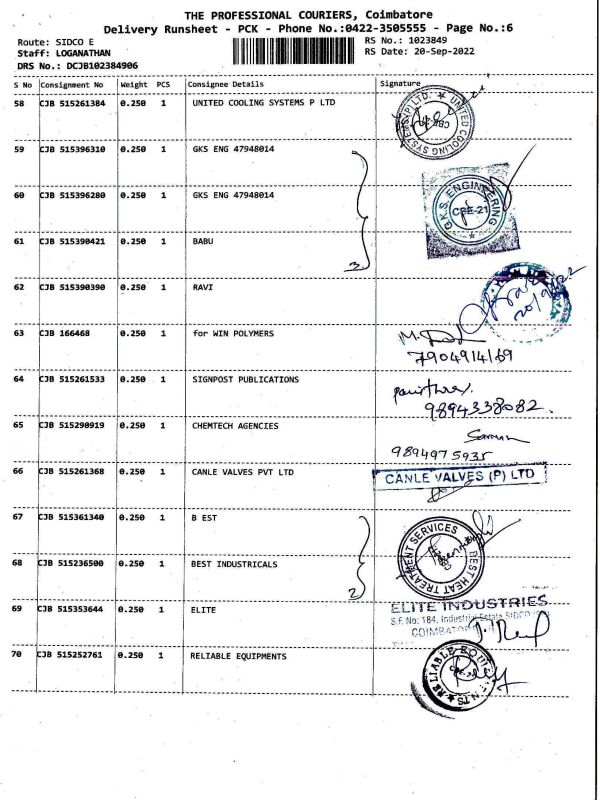 THE PROFESSIONAL COURIERS, Coimbatore
Delivery Runsheet - PCK - Phone No.:0422-3505555 - Page No.:6
Route: SIDCO E
RS No.: 1023849
Staff: LOGANATHAN
RS Date: 20-Sep-2022
DRS No.: DCJB102384906
S No Consignment No Weight PCS Consignee Details Signature
58 CJB 515261384 0.250 1 UNITED COOLING SYSTEMS P LTD
UNITED COOLING SYSTEMS (P) LTD. ★
59 CJB 515396310 0.250 1 GKS ENG 47948014
60 CJB 515396280 0.250 1 GKS ENG 47948014
G.K.S. ENGINEERING
CBE-21
61 CJB 515390421 0.250 1 BABU
3
62 CJB 515390390 0.250 1 RAVI
20/9/22
63 CJB 166468 0.250 1 for WIN POLYMERS
7904914169
64 CJB 515261533 0.250 1 SIGNPOST PUBLICATIONS
9894338082.
65 CJB 515290919 0.250 1 CHEMTECH AGENCIES
9894975935
66 CJB 515261368 0.250 1 CANLE VALVES PVT LTD
CANLE VALVES (P) LTD
67 CJB 515361340 0.250 1 B EST
BEST HEAT TREATMENT SERVICES
68 CJB 515236500 0.250 1 BEST INDUSTRICALS
2
69 CJB 515353644 0.250 1 ELITE
ELITE INDUSTRIES
S.F. No: 184, Industrial Estate SIDCO
COIMBATORE
70 CJB 515252761 0.250 1 RELIABLE EQUIPMENTS
RELIABLE EQUIPMENTS